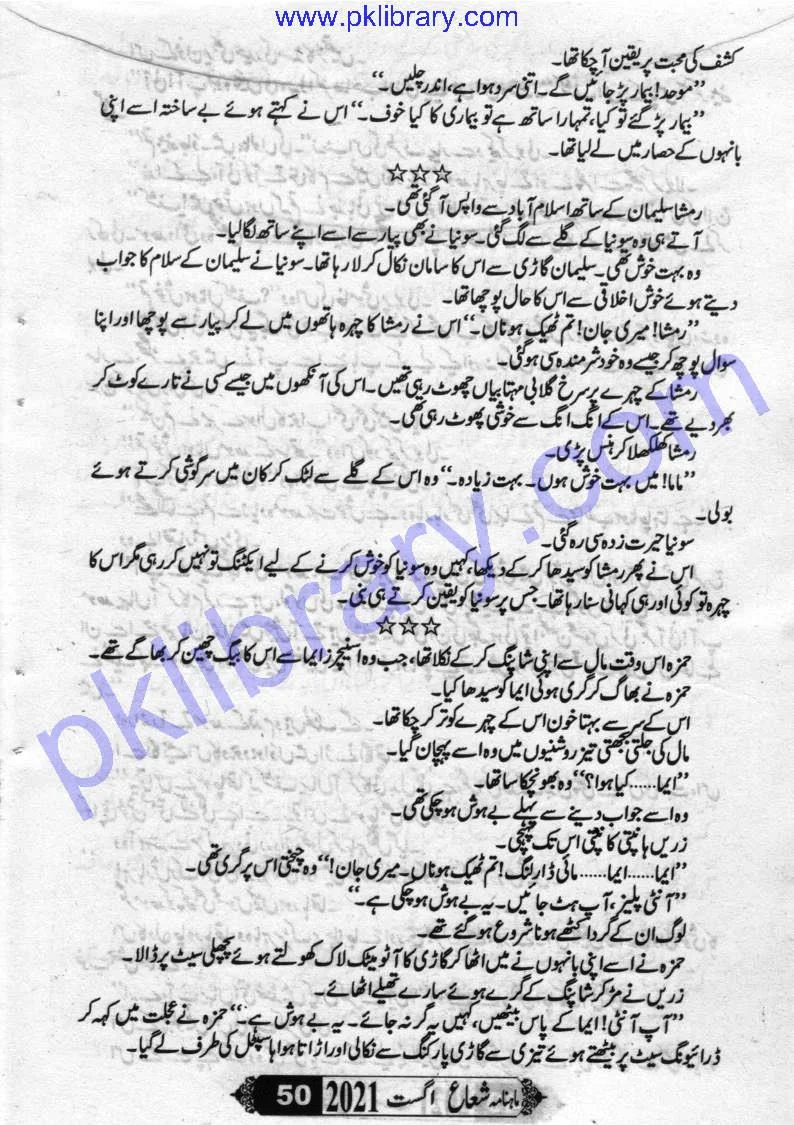 www.pklibrary.com
کشف کی محبت پر یقین آ چکا تھا۔
”موحد! بیمار پڑ جائیں گے۔ اتنی سرد ہوا ہے، اندر چلیں۔“
”بیمار پڑ گئے تو کیا، تمہارا ساتھ ہے تو بیماری کا کیا خوف۔“ اس نے کہتے ہوئے بے ساختہ اسے اپنی
بانہوں کے حصار میں لے لیا تھا۔
☆☆☆
رمشا سلیمان کے ساتھ اسلام آباد سے واپس آ گئی تھی۔
آتے ہی وہ سونیا کے گلے سے لگ گئی۔ سونیا نے بھی پیار سے اسے اپنے ساتھ لگا لیا۔
وہ بہت خوش تھی۔ سلیمان گاڑی سے اس کا سامان نکال کر لا رہا تھا۔ سونیا نے سلیمان کے سلام کا جواب
دیتے ہوئے خوش اخلاقی سے اس کا حال پوچھا تھا۔
”رمشا! میری جان! تم ٹھیک ہو ناں۔“ اس نے رمشا کا چہرہ ہاتھوں میں لے کر پیار سے پوچھا اور اپنا
سوال پوچھ کر جیسے وہ خود شرمندہ سی ہو گئی۔
رمشا کے چہرے پر سرخ گلابی مہتابیاں چھوٹ رہی تھیں۔ اس کی آنکھوں میں جیسے کسی نے تارے کوٹ کر
بھر دیے تھے۔ اس کے انگ انگ سے خوشی پھوٹ رہی تھی۔
رمشا کھلکھلا کر ہنس پڑی۔
”ماما! میں بہت خوش ہوں۔ بہت زیادہ۔“ وہ اس کے گلے سے لٹک کر کان میں سرگوشی کرتے ہوئے
بولی۔
سونیا حیرت زدہ سی رہ گئی۔
اس نے پھر رمشا کو سیدھا کر کے دیکھا، کہیں وہ سونیا کو خوش کرنے کے لیے ایکٹنگ تو نہیں کر رہی مگر اس کا
چہرہ تو کوئی اور ہی کہانی سنا رہا تھا۔ جس پر سونیا کو یقین کرتے ہی بنی۔
☆☆☆
حمزہ اس وقت مال سے اپنی شاپنگ کر کے نکلا تھا، جب وہ اسنیچرز ایما سے اس کا بیگ چھین کر بھاگے تھے۔
حمزہ نے بھاگ کر گری ہوئی ایما کو سیدھا کیا۔
اس کے سر سے بہتا خون اس کے چہرے کو تر کر چکا تھا۔
مال کی جلتی بجھتی تیز روشنیوں میں وہ اسے پہچان گیا۔
”ایما...... کیا ہوا؟“ وہ بھونچکا سا تھا۔
وہ اسے جواب دینے سے پہلے بے ہوش ہو چکی تھی۔
زریں ہانپتی کانپتی اس تک پہنچی۔
”ایما...... ایما...... مائی ڈارلنگ! تم ٹھیک ہو ناں۔ میری جان!“ وہ چیختی اس پر گری تھی۔
”آنٹی پلیز، آپ ہٹ جائیں۔ یہ بے ہوش ہو چکی ہے۔“
لوگ ان کے گرد اکٹھے ہونا شروع ہو گئے تھے۔
حمزہ نے اسے اپنی بانہوں نے میں اٹھا کر گاڑی کا آٹو میٹک لاک کھولتے ہوئے پچھلی سیٹ پر ڈالا۔
زریں نے مڑ کر شاپنگ کے گرے ہوئے سارے تھیلے اٹھائے۔
”آپ آنٹی! ایما کے پاس بیٹھیں، کہیں یہ گر نہ جائے۔ یہ بے ہوش ہے۔“ حمزہ نے عجلت میں کہہ کر
ڈرائیونگ سیٹ پر بیٹھتے ہوئے تیزی سے گاڑی پارکنگ سے نکالی اور اڑاتا ہوا ہاسپٹل کی طرف لے گیا۔
ماہنامہ شعاع اگست 2021 50
pklibrary.com